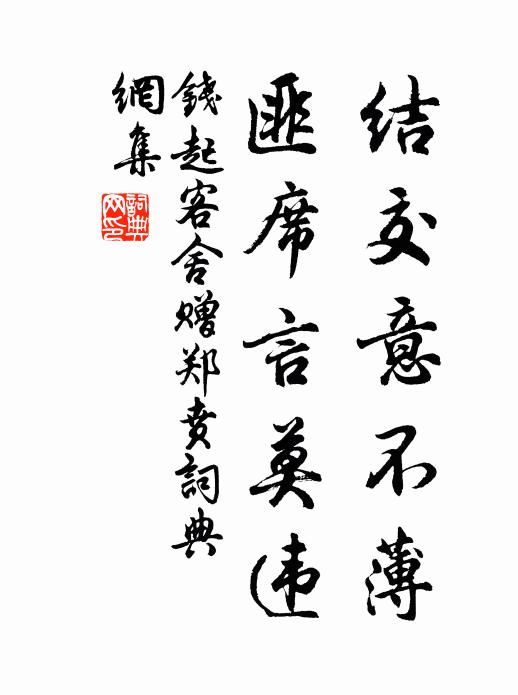 结交意不薄
匪席言莫违
錢起客舍赠郑贲詞典
網集
詞典
网印